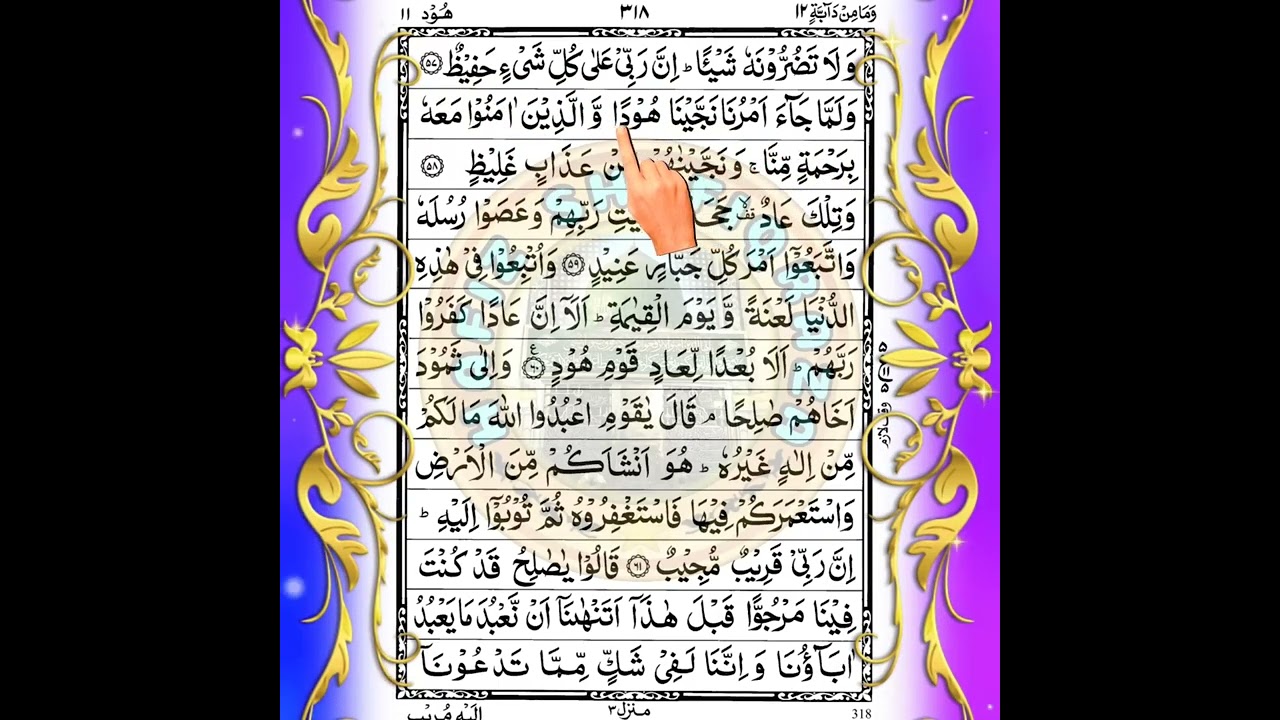 وَمَا مِنْ دَآبَّةٍ ١٢ ٣١٨ هُوْد ١١
وَلَا تَضُرُّوْنَهٗ شَيْئًا ؕ اِنَّ رَبِّيْ عَلٰى كُلِّ شَيْءٍ حَفِيْظٌ ﴿۵۷﴾
وَلَمَّا جَآءَ اَمْرُنَا نَجَّيْنَا هُوْدًا وَّ الَّذِيْنَ اٰمَنُوْا مَعَهٗ
بِرَحْمَةٍ مِّنَّا ۚ وَ نَجَّيْنٰهُمْ مِّنْ عَذَابٍ غَلِيْظٍ ﴿۵۸﴾
وَتِلْكَ عَادٌ ۙ۫ جَحَ يٰتِ رَبِّهِمْ وَ عَصَوْا رُسُلَهٗ
وَاتَّبَعُوْۤا اَمْرَ كُلِّ جَبَّارٍ عَنِيْدٍ ﴿۵۹﴾ وَاُتْبِعُوْا فِيْ هٰذِهِ
الدُّنْيَا لَعْنَةً وَّ يَوْمَ الْقِيٰمَةِ ؕ اَلَاۤ اِنَّ عَادًا كَفَرُوْا
رَبَّهُمْ ؕ اَلَا بُعْدًا لِّعَادٍ قَوْمِ هُوْدٍ ﴿۶۰﴾ ع وَاِلٰى ثَمُوْدَ
اَخَاهُمْ صٰلِحًا ۘ قَالَ يٰقَوْمِ اعْبُدُوا اللّٰهَ مَا لَكُمْ
مِّنْ اِلٰهٍ غَيْرُهٗ ؕ هُوَ اَنْشَاَكُمْ مِّنَ الْاَرْضِ
وَاسْتَعْمَرَكُمْ فِيْهَا فَاسْتَغْفِرُوْهُ ثُمَّ تُوْبُوْۤا اِلَيْهِ ؕ
اِنَّ رَبِّيْ قَرِيْبٌ مُّجِيْبٌ ﴿۶۱﴾ قَالُوْا يٰصٰلِحُ قَدْ كُنْتَ
فِيْنَا مَرْجُوًّا قَبْلَ هٰذَاۤ اَتَنْهٰىنَاۤ اَنْ نَّعْبُدَ مَا يَعْبُدُ
اٰبَآؤُنَا وَ اِنَّنَا لَفِيْ شَكٍّ مِّمَّا تَدْعُوْنَاۤ
وقف لازم
318 منزل ٣ اِلَيْهِ مُرِيْبٍ
HAFIZ SHAFIQRAZA